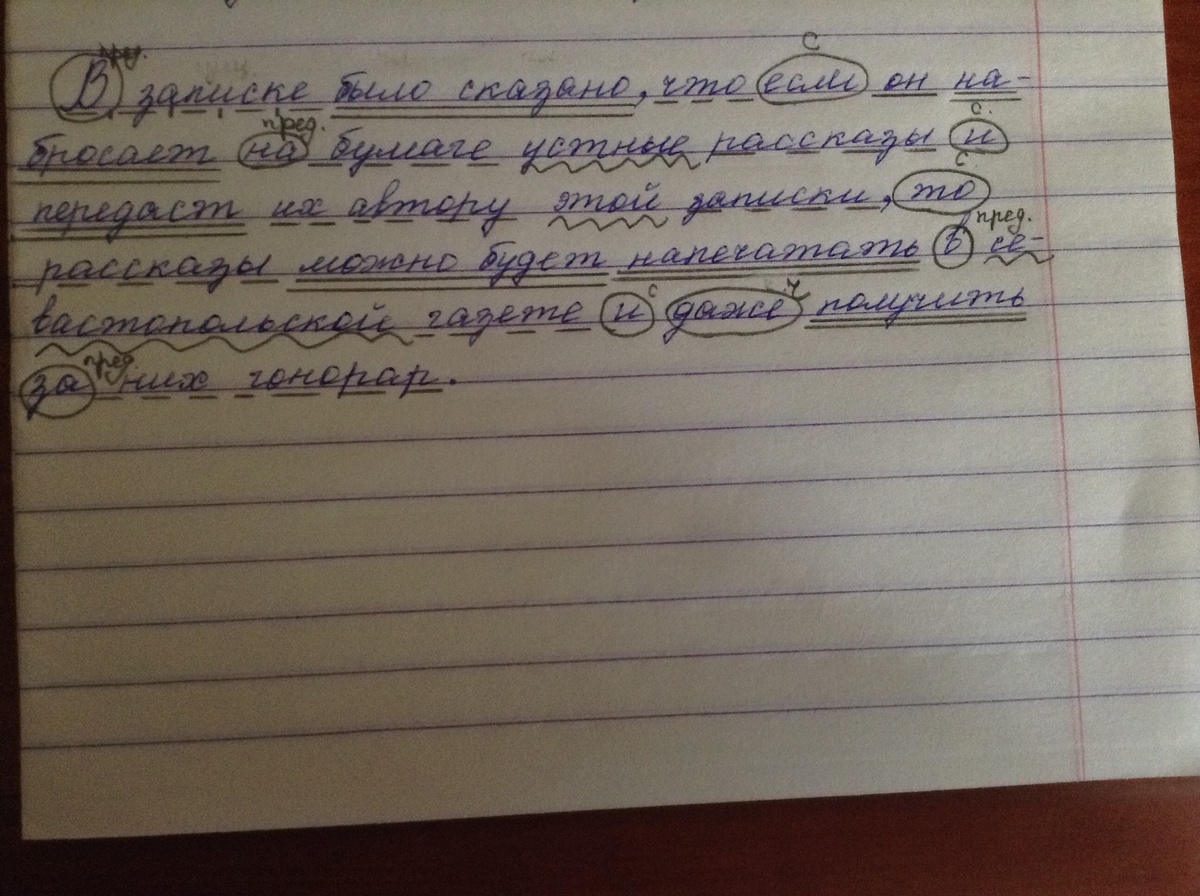 пред.
С
В записке было сказано, что если он на-
пред.
С.
бросает на бумаге устные рассказы и
С
передаст их автору этой записки, то
пред.
рассказы можно будет напечатать в се-
С
Ч
вастопольской газете и даже получить
пред.
за них гонорар.